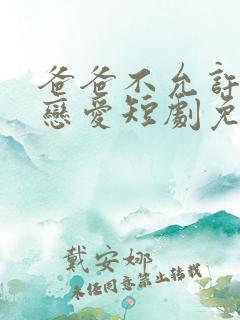 爸爸不允許
戀愛短劇免
戴安娜
未經同意禁止轉載